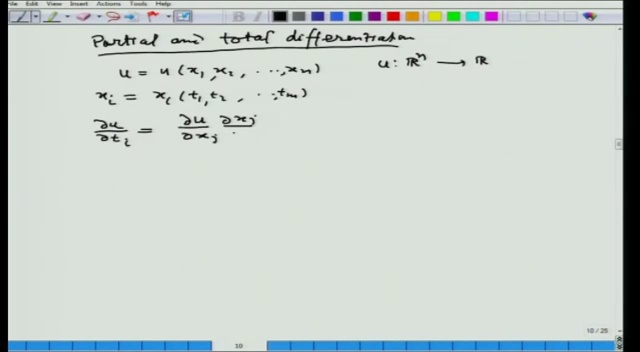 File Edit View Insert Actions Tools Help
Partial and total differentiation
u = u (x₁, x₂, ..., xₙ) u: ℝⁿ → ℝ
xᵢ = xᵢ (t₁, t₂, ..., tₘ)
∂u/∂tᵢ = ∂u/∂xⱼ ∂xⱼ/
10 / 25
10